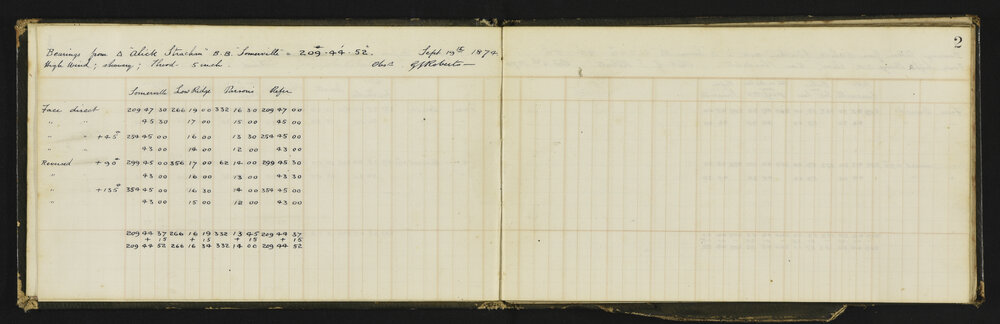 Bearings from △ "Alick Strachan" B.B. Somerville = 209° 44' 52" Sept 19th 1874
High Wind; showery; Theod. 5 inch. Obsr G J Roberts
2
Somerville Low Ridge Parsons Refer
Face direct 209 47 30 266 19 00 332 16 30 209 47 00
" " 45 30 17 00 15 00 45 00
" " +45° 254 45 00 16 00 13 30 254 45 00
" " 43 00 14 00 12 00 43 00
Reversed +90° 299 45 00 356 17 00 62 14 00 299 45 30
" 43 00 16 00 13 00 43 30
" +135° 354 45 00 16 30 14 00 354 45 00
" 43 00 15 00 12 00 43 00
209 44 37 266 16 19 332 13 45 209 44 37
+ 15 + 15 + 15 + 15
209 44 52 266 16 34 332 14 00 209 44 52